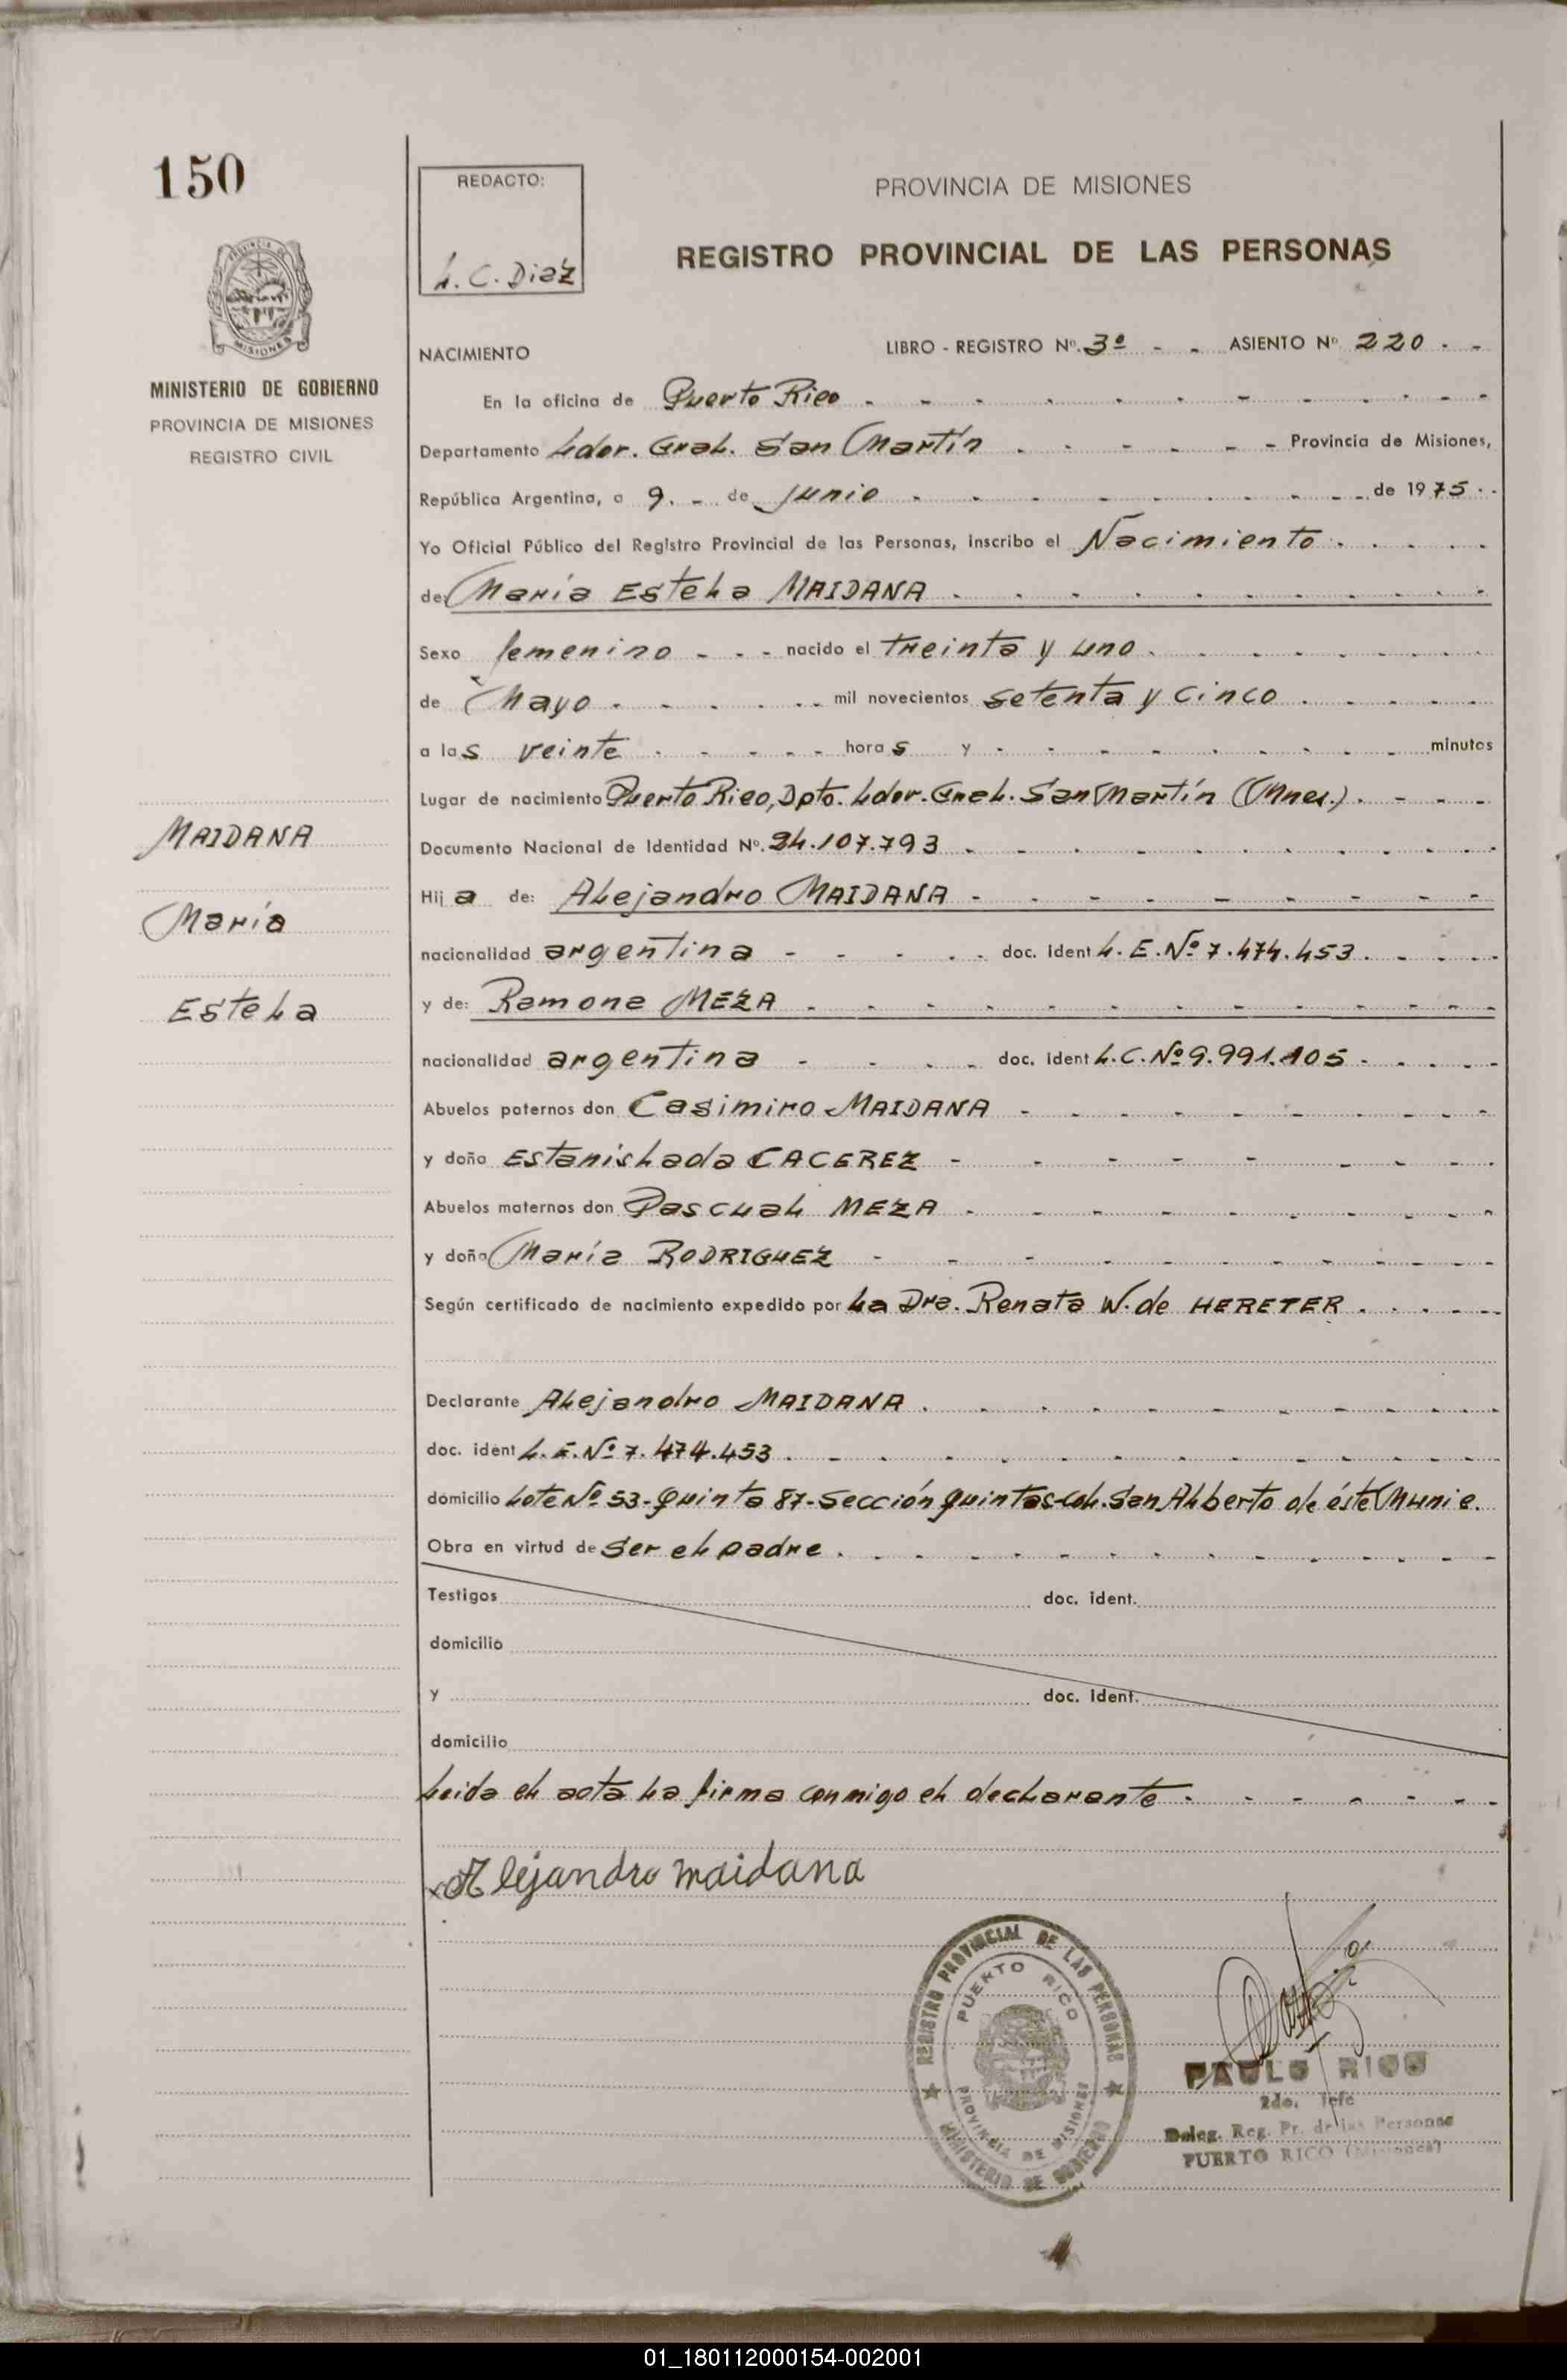 150
REDACTO:
L. C. Diaz
PROVINCIA DE MISIONES
REGISTRO PROVINCIAL DE LAS PERSONAS
MISIONES
MINISTERIO DE GOBIERNO
PROVINCIA DE MISIONES
REGISTRO CIVIL
NACIMIENTO LIBRO - REGISTRO Nº. 3º - - ASIENTO Nº 220 - -
En la oficina de Puerto Rico
Departamento Lder. Gral. San Martín Provincia de Misiones,
República Argentina, a 9. - de Junio de 1975
Yo Oficial Público del Registro Provincial de las Personas, inscribo el Nacimiento
de: María Estela MAIDANA
Sexo femenino - - - nacido el treinta y uno
de Mayo mil novecientos setenta y cinco
a las veinte horas y minutos
Lugar de nacimiento Puerto Rico, Dpto. Lder. Gral. San Martín (Mnes.)
Documento Nacional de Identidad Nº. 24.107.793
Hija de: Alejandro MAIDANA
nacionalidad argentina doc. ident L. E. Nº 7.474.453
y de: Ramona MEZA
nacionalidad argentina doc. ident L. C. Nº 9.991.105
Abuelos paternos don Casimiro MAIDANA
y doña Estanislada CACEREZ
Abuelos maternos don Pascual MEZA
y doña María RODRIGUEZ
Según certificado de nacimiento expedido por la Dra. Renata W. de HERETER
Declarante Alejandro MAIDANA
doc. ident L. E. Nº 7.474.453
domicilio Lote Nº 53-Quinta 87-Sección Quintas-Col. San Alberto de éste Munic.
Obra en virtud de ser el padre
Testigos doc. ident.
domicilio
y doc. ident.
domicilio
Leida el acta la firma conmigo el declarante
Alejandro maidana
MAIDANA
María
Estela
REGISTRO PROVINCIAL DE LAS PERSONAS
PUERTO RICO
PROVINCIA DE MISIONES
MINISTERIO DE GOBIERNO
PAULO RICO
2do. Jefe
Deleg. Reg. Pr. de las Personas
PUERTO RICO (Misiones)
01_180112000154-002001